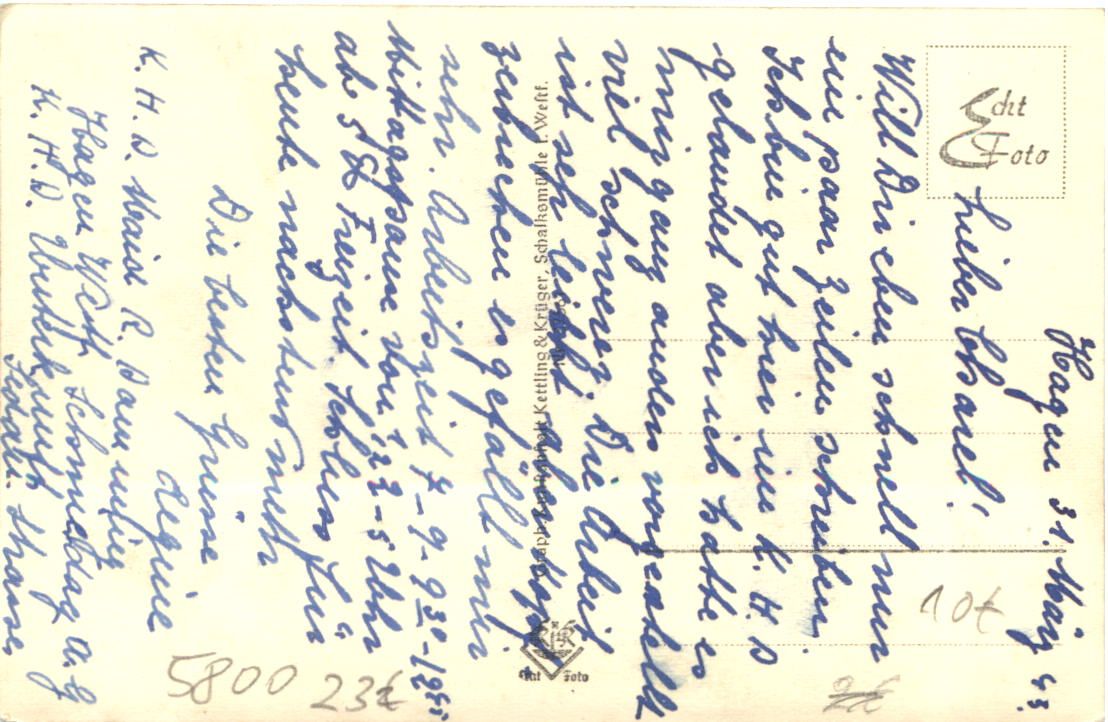 Hagen 31. März 43.
Lieber Otsarel!
Will Dir eben schnell nur
ein paar Zeilen schreiben
Ich bin gut hier im K. H. D
gelandet aber ich hatte es
mir ganz anders vorgestellt
viel schwerer. Die Arbeit
ist sehr leicht
zerbrechen es gefällt mir
sehr. Arbeitszeit 7-9. 9³⁰-12⁴⁵
Mittagspause von 12³-5 Uhr
ab 5 Uhr Freizeit. Schluss für
heute nachstens mehr
Die besten Grüsse
Regine
K. H. D. Maid R.
Hagen Westf.
K. H. D. Unterkunft
Echt
Foto
Kettling & Krüger, Schalksmühle i. Westf.
Echt Foto
10€
5800
23€
2€